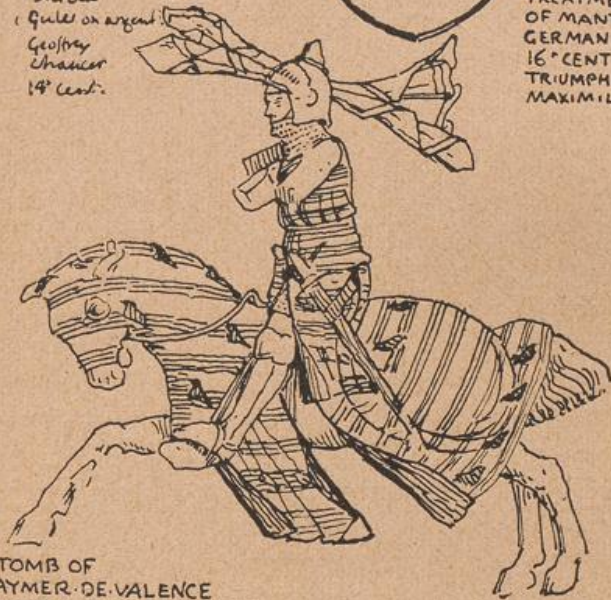 Gules on argent
Geoffrey
Chaucer
14th cent:
TREATME
OF MANT
GERMAN
16TH CENT
TRIUMPH
MAXIMIL
TOMB OF
AYMER·DE·VALENCE